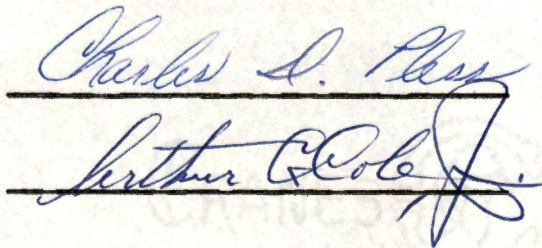 Charles D. Pless
Arthur C. Cole Jr.